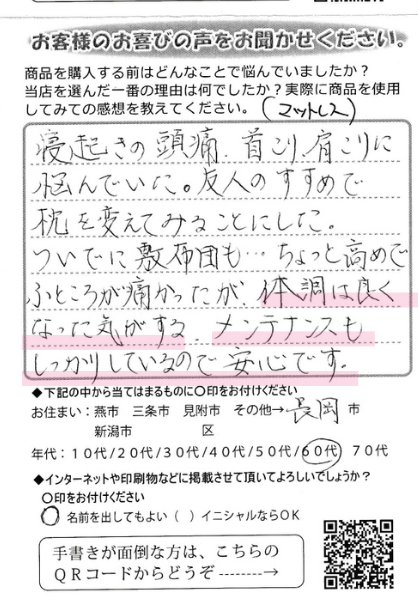 お客様のお喜びの声をお聞かせください。
商品を購入する前はどんなことで悩んでいましたか？
当店を選んだ一番の理由は何でしたか？実際に商品を使用
してみての感想を教えてください。（マットレス）
寝起きの頭痛、首こり、肩こりに
悩んでいた。友人のすすめで
枕を変えてみることにした。
ついでに敷布団も…ちょっと高めで
ふところが痛かったが、体調は良く
なった気がする。メンテナンスも
しっかりしているので安心です。
◆下記の中から当てはまるものに〇印をお付けください
お住まい：燕市 三条市 見附市 その他→長岡市
新潟市 区
年代：10代/20代/30代/40代/50代/60代 70代
◆インターネットや印刷物などに掲載させて頂いてよろしいでしょうか？
〇印をお付けください
〇 名前を出してもよい（ ）イニシャルならOK
手書きが面倒な方は、こちらの
QRコードからどうぞ--------→